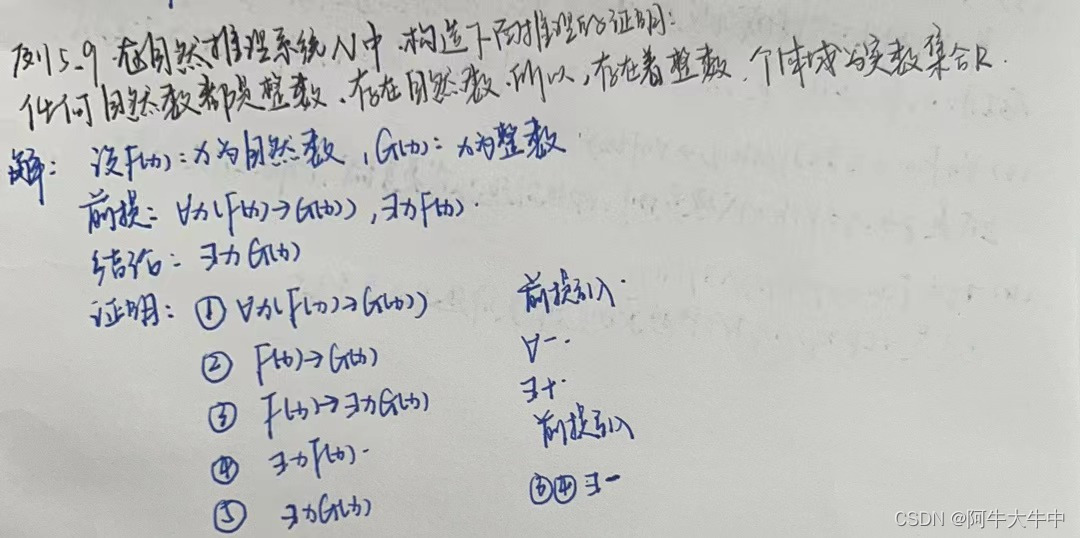 例5.9 在自然推理系统N中,构造下面推理的证明:
任何自然数都是整数,存在自然数.所以,存在着整数.个体域为实数集合R.
解: 设F(x):x为自然数,G(x):x为整数
前提:∀x(F(x)→G(x)),∃xF(x).
结论:∃xG(x)
证明:①∀x(F(x)→G(x)) 前提引入.
② F(x)→G(x) ∀-.
③ F(x)→∃xG(x) ∃+.
④ ∃xF(x). 前提引入
⑤ ∃xG(x) ③④∃-
CSDN @阿牛大牛中